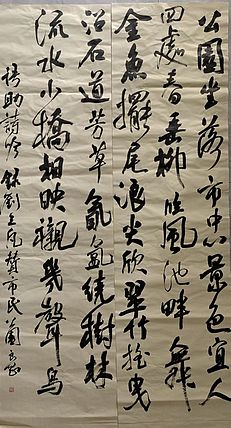 公園坐落市中心景色宜人
四處春垂柳臨風池畔舞
金魚擺尾浪尖欣翠竹搖曳
沿石道芳草氤氳繞樹林
流水小橋相映襯幾聲鳥
楊
詩
錄劉
贊市民